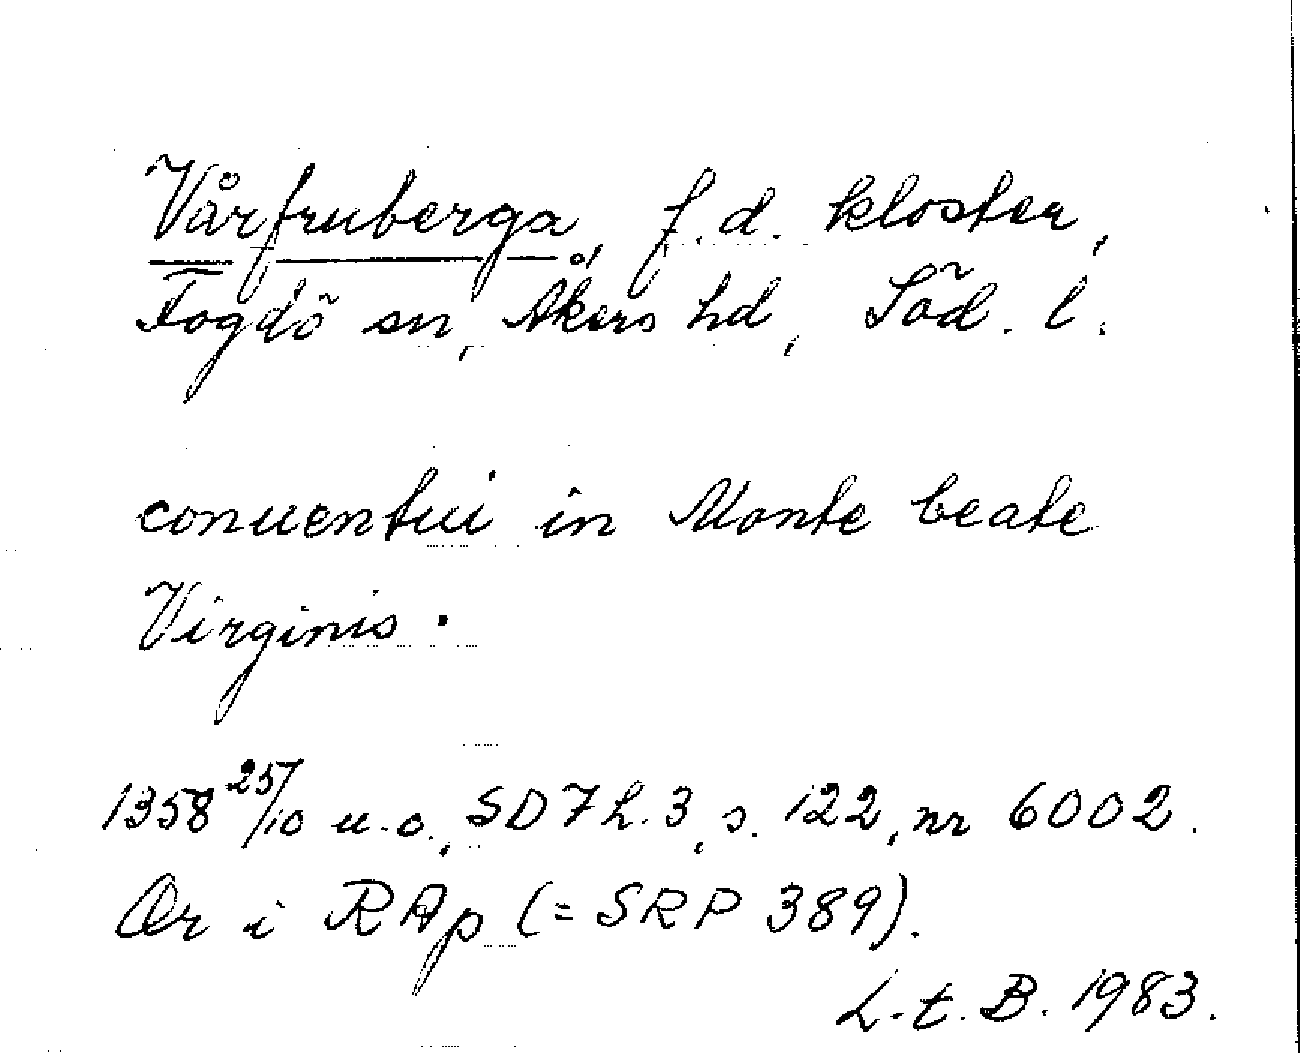 Vårfruberga, f.d. kloster,
Fogdö sn, Åkers hd, Söd. l.
conuentui in Monte beate
Virginis.
1358 25/10 u.o., SD 7 h. 3, s. 122, nr 6002.
Or i RAp (= SRP 389).
L.t.B. 1983.